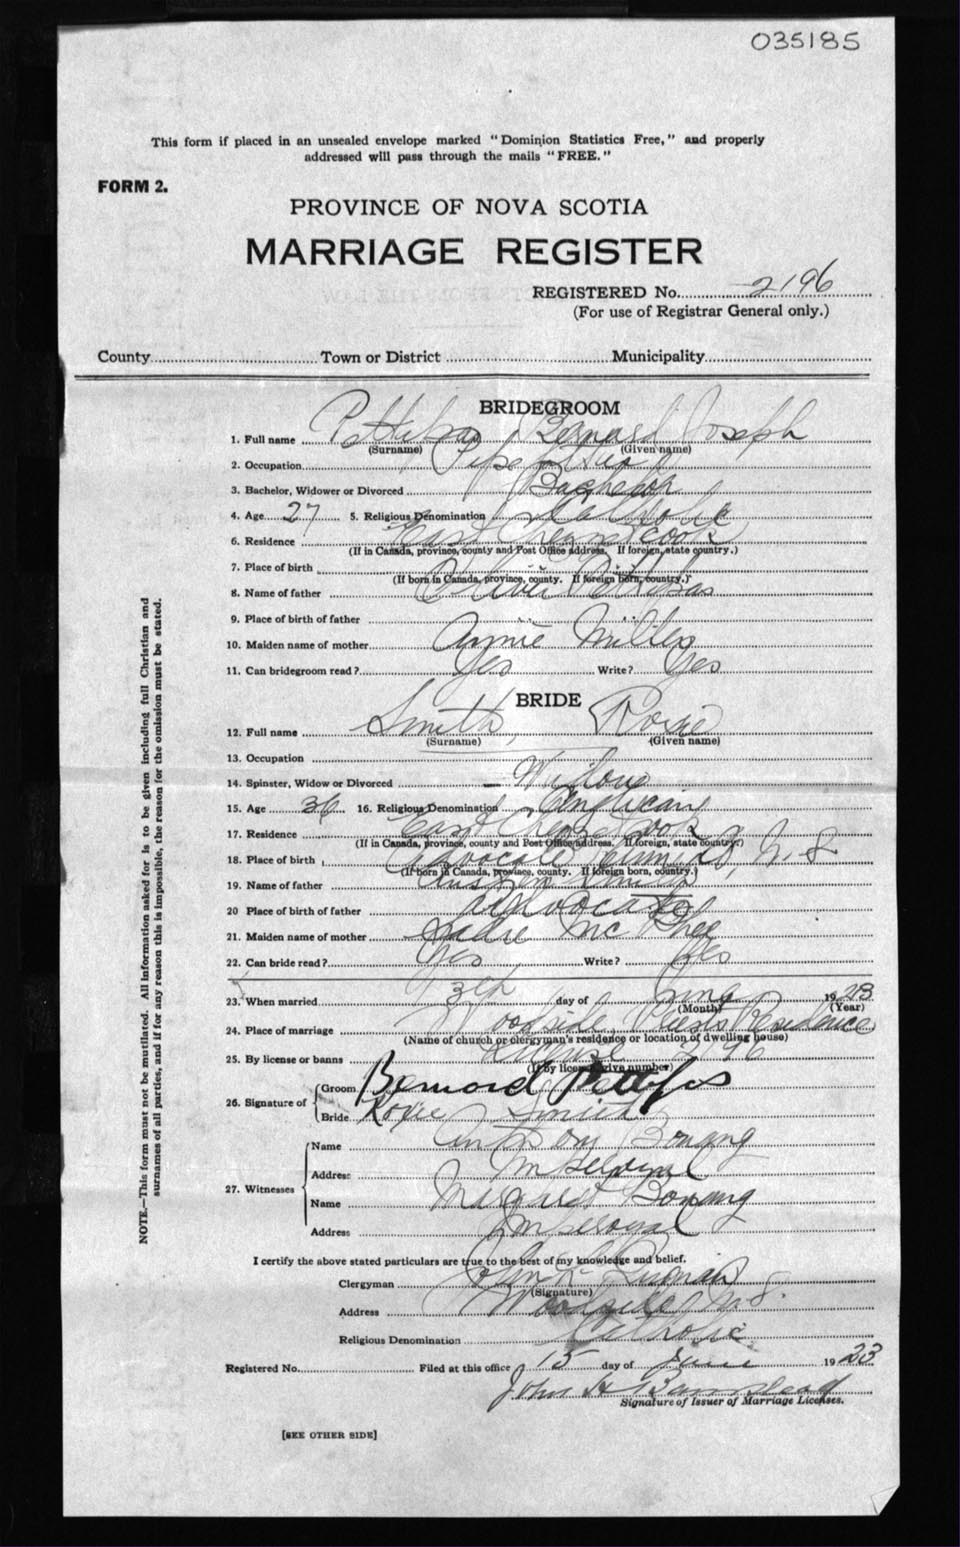 035185
This form if placed in an unsealed envelope marked "Dominion Statistics Free," and properly
addressed will pass through the mails "FREE."
FORM 2.
PROVINCE OF NOVA SCOTIA
MARRIAGE REGISTER
REGISTERED No. 2196
(For use of Registrar General only.)
County Town or District Municipality
BRIDEGROOM
1. Full name Bernard Joseph
(Surname) (Given name)
2. Occupation Pipe
3. Bachelor, Widower or Divorced Bachelor
4. Age 27 5. Religious Denomination Catholic
6. Residence East Chezzetcook
(If in Canada, province, county and Post Office address. If foreign, state country.)
7. Place of birth
(If born in Canada, province, county. If foreign born, country.)
8. Name of father Oliver Pettipas
9. Place of birth of father
10. Maiden name of mother Annie
11. Can bridegroom read? Yes Write? Yes
BRIDE
12. Full name Smith, Roxie
(Surname) (Given name)
13. Occupation
14. Spinster, Widow or Divorced Widow
15. Age 36 16. Religious Denomination Anglican
17. Residence East
(If in Canada, province, county and Post Office address. If foreign, state country.)
18. Place of birth Advocate N. S.
(If born in Canada, province, county. If foreign born, country.)
19. Name of father
20 Place of birth of father Advocate
21. Maiden name of mother Sadie Mc Phee
22. Can bride read? Yes Write? Yes
23. When married 13th day of June 1923
(Month) (Year)
24. Place of marriage Woodside, Priests Residence
(Name of church or clergyman's residence or location of dwelling house)
25. By license or banns License 2196
(If by license give number)
26. Signature of Groom Bernard Pettipas
Bride Roxie Smith
27. Witnesses
Name Anthony Bonang
Address Imperoyal
Name Margaret Bonang
Address Imperoyal
I certify the above stated particulars are true to the best of my knowledge and belief.
Clergyman John
(Signature)
Address Woodside N. S.
Religious Denomination Catholic
Registered No. Filed at this office 15 day of June 1923
John H Barnstead
Signature of Issuer of Marriage Licenses.
[SEE OTHER SIDE]
NOTE.—This form must not be mutilated. All information asked for is to be given including full Christian and
surnames of all parties, and if for any reason this is impossible, the reason for the omission must be stated.